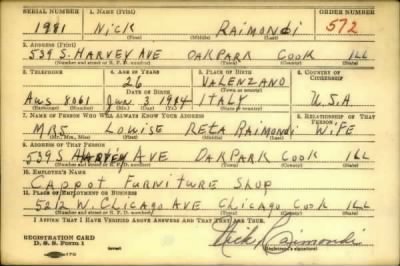 SERIAL NUMBER 1. NAME (Print) ORDER NUMBER
1981 Nick RAIMONDI 572
(First) (Middle) (Last)
2. ADDRESS (Print)
539 S. HARVEY AVE OAK PARK COOK ILL
(Number and street or R. F. D. number) (Town) (County) (State)
3. TELEPHONE 4. AGE IN YEARS 5. PLACE OF BIRTH 6. COUNTRY OF
CITIZENSHIP
26 VALENZANO
DATE OF BIRTH (Town or county)
Aus 8061 Jan. 3 1914 ITALY U.S.A
(Exchange) (No.) (Mo.) (Day) (Yr.) (State or country)
7. NAME OF PERSON WHO WILL ALWAYS KNOW YOUR ADDRESS 8. RELATIONSHIP OF THAT
PERSON
MRS. LOUISE RETA RAIMONDI WIFE
(Mr., Mrs., Miss) (First) (Middle) (Last)
9. ADDRESS OF THAT PERSON
539 S HARVEY AVE OAK PARK COOK ILL
(Number and street or R. F. D. number) (Town) (County) (State)
10. EMPLOYER'S NAME
CAPPOT FURNITURE SHOP
11. PLACE OF EMPLOYMENT OR BUSINESS
5212 W. CHICAGO AVE CHICAGO COOK ILL
(Number and street or R. F. D. number) (Town) (County) (State)
I AFFIRM THAT I HAVE VERIFIED ABOVE ANSWERS AND THAT THEY ARE TRUE.
REGISTRATION CARD
D. S. S. Form 1 Nick Raimondi
(Registrant's signature)